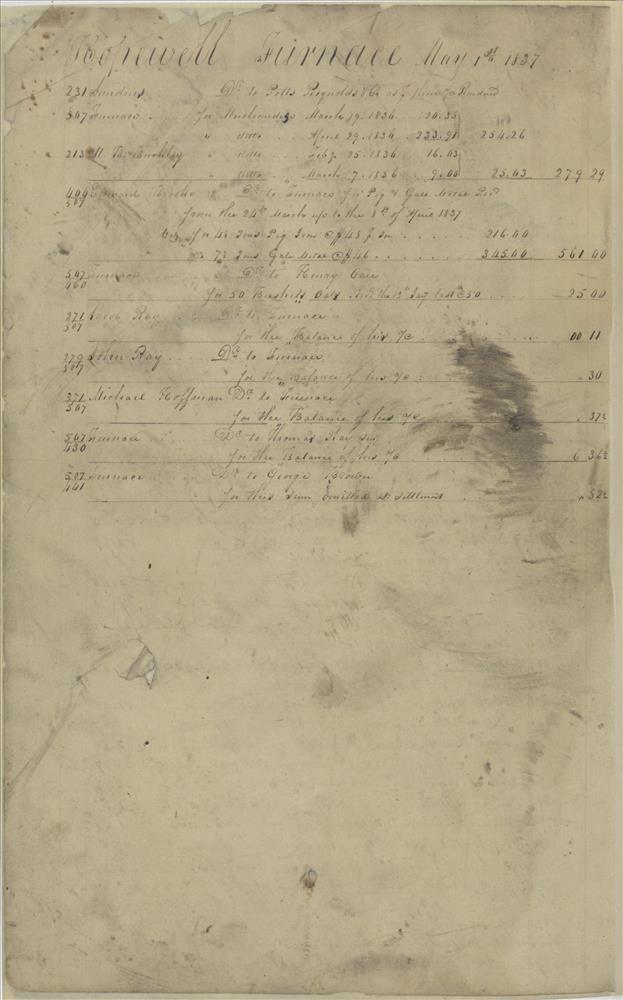 Hopewell Furnace May 1st 1837
231 Sundries Dr. to Potts Reynolds & Co
507 Furnace for Merchandize March 19. 1836 20.35
" ditto April 29. 1836 233.91 254.26
213 " ditto Feby 25. 1836 16.03
" ditto March 7. 1836 9.00 25.03 279 29
409 Edward Brooke Dr. to Furnace for Pig & Gate Metal
507 from the 24th March up to the 8th of April 1837
for 4 Tons Pig Iron @ $48 216.00
7 Tons Gate Metal @ $46 345.00 561 00
507 Furnace Dr. to Henry Care
460 for 50 Bushels Oats 50 25 00
271 Jacob Ray Dr. to Furnace
507 for the Balance of his a/c 00 11
279 John Ray Dr. to Furnace
507 for the Balance of his a/c " 30
371 Michael Hoffman Dr. to Furnace
507 for the Balance of his a/c " 37½
507 Furnace Dr. to Thomas Ray
430 for the Balance of his a/c 6 36½
507 Furnace Dr. to George Brown
441 for this Sum omitted at settlement " 52½